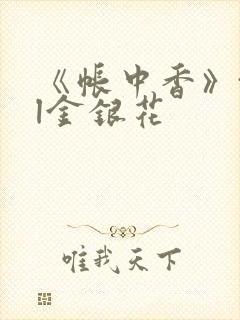 《帐中香》
l金银花
唯我天下